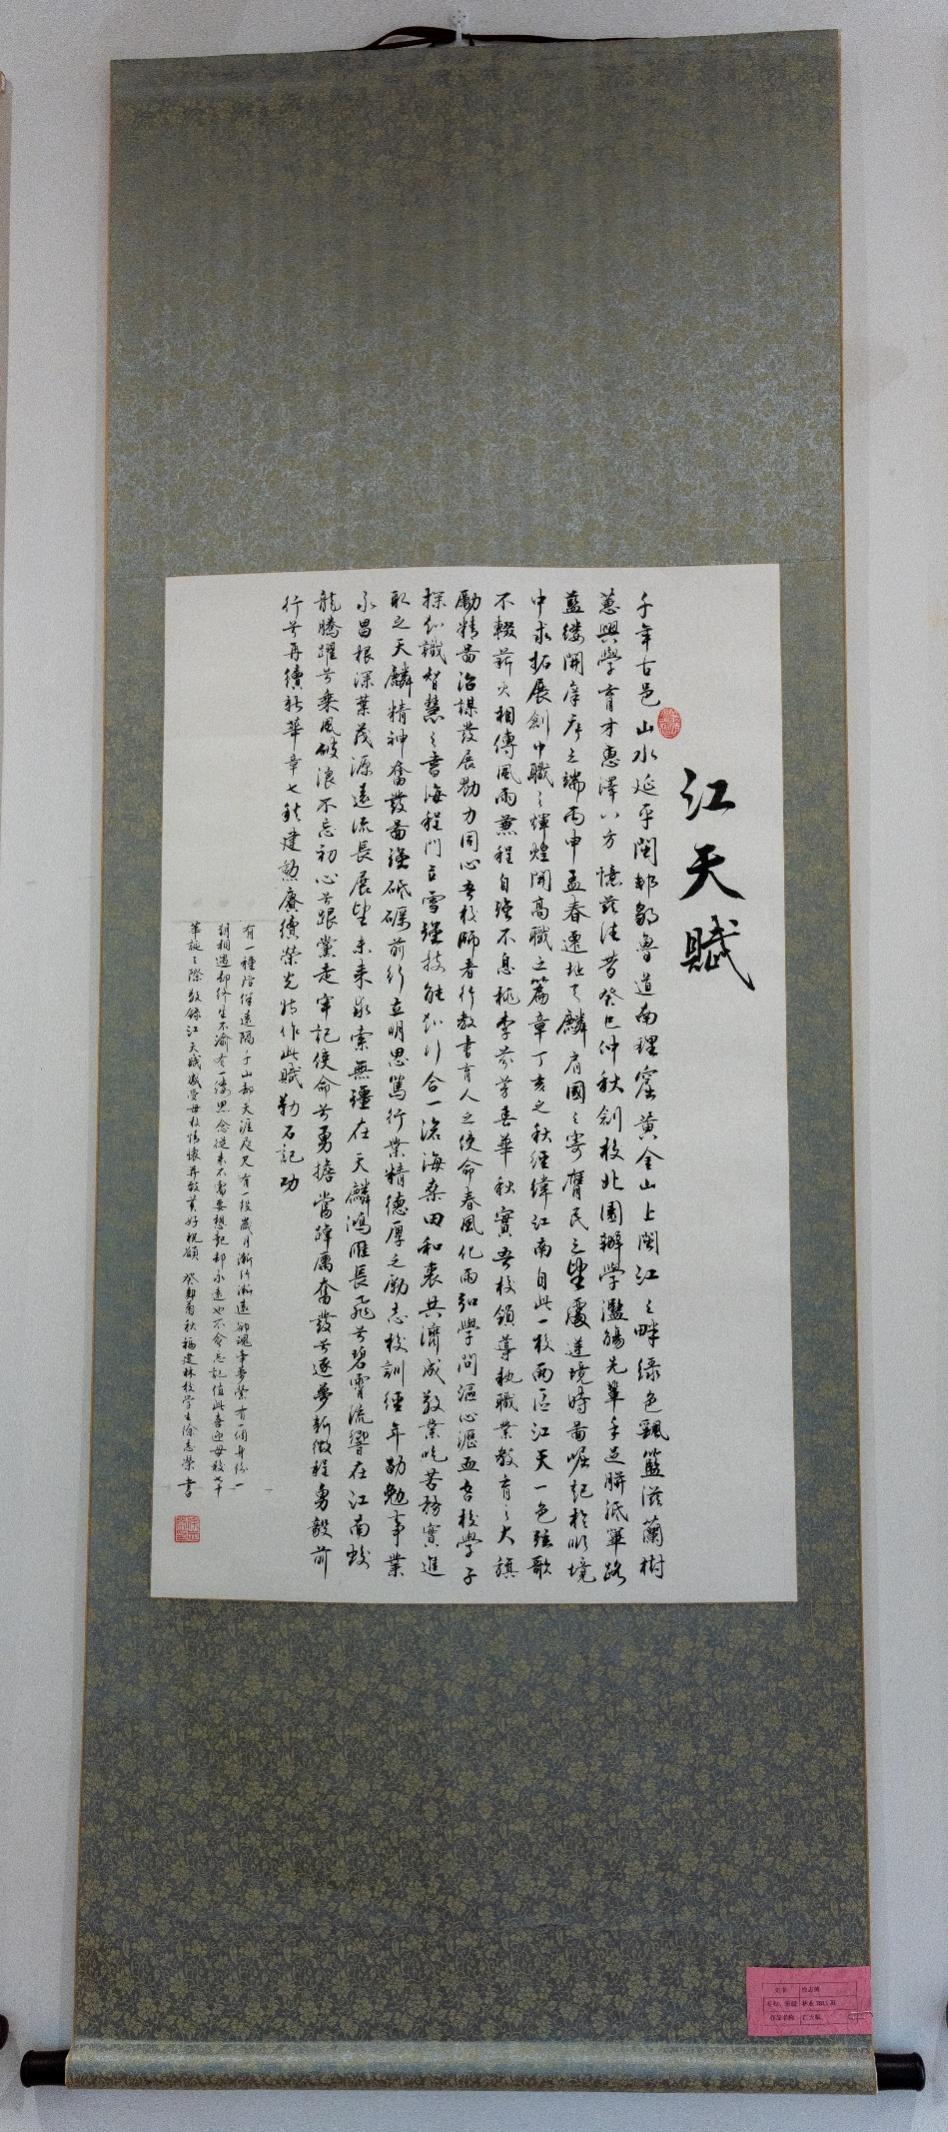 江天賦
千年古邑山水延平閩邦鄒魯道南理窟黄金山上閩江之畔綠色颿籃滋蘭樹
蕙興學育才惠澤八方憶茲往昔癸巳仲秋創校北園辦學濫觴先輩手足胼胝篳路
藍縷開庠序之端丙申孟春遷址天麟肩國之寄膺民之望處逆境時啚崛起於順境
中求拓展創中職之輝煌開高職之篇章丁亥之秋經緯江南自此一校兩區江天一色弦歌
不輟薪火相傳風雨兼程自強不息桃李芬芳春華秋實吾校領導執職業教育之大旗
勵精啚治謀發展勠力同心吾校師者行教書育人之使命春風化雨弘學問漚心瀝血吾校學子
探知識智慧之書海程門立雪強技能知行合一滄海桑田和衷共濟成敬業吃苦務實進
取之天麟精神奮發啚強砥礪前行立明思篤行業精德厚之勵志校訓經年勖勉事業
永昌根深葉茂源遠流長展望未來求索無疆在天麟鴻雁長飛兮碧霄流響在江南蛟
龍騰躍兮乘風破浪不忘初心兮跟黨走牢記使命兮勇擔當踔厲奮發兮逐夢新徵程勇毅前
行兮再續新華章七秩建勲賡續榮光特作此賦勒石記功
有一種陪伴遠隔千山却天涯咫尺有一段歲月漸行漸遠却魂牽夢縈有一個身份一
朝相遇却終生不渝有一縷思念從來不需要想起却永遠也不會忘記值此喜迎母校七十
華誕之際敬錄江天賦感受母校情懷并致美好祝願 癸卯菊秋福建林校學生徐志榮書